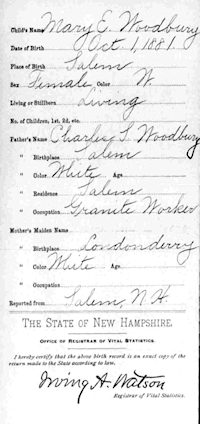 Child's Name Mary E. Woodbury
Date of Birth Oct. 1, 1881
Place of Birth Salem
Sex Female, Color W.
Living or Stillborn Living
No. of Children, 1st, 2d, etc.
Father's Name Charles T. Woodbury
" Birthplace Salem
" Color White Age
" Residence Salem
" Occupation Granite Worker
Mother's Maiden Name
" Birthplace Londonderry
" Color White Age
" Occupation
Reported from Salem, N.H.
THE STATE OF NEW HAMPSHIRE.
OFFICE OF REGISTRAR OF VITAL STATISTICS.
I hereby certify that the above birth record is an exact copy of the
return made to the State according to law.
Irving A. Watson
Registrar of Vital Statistics.